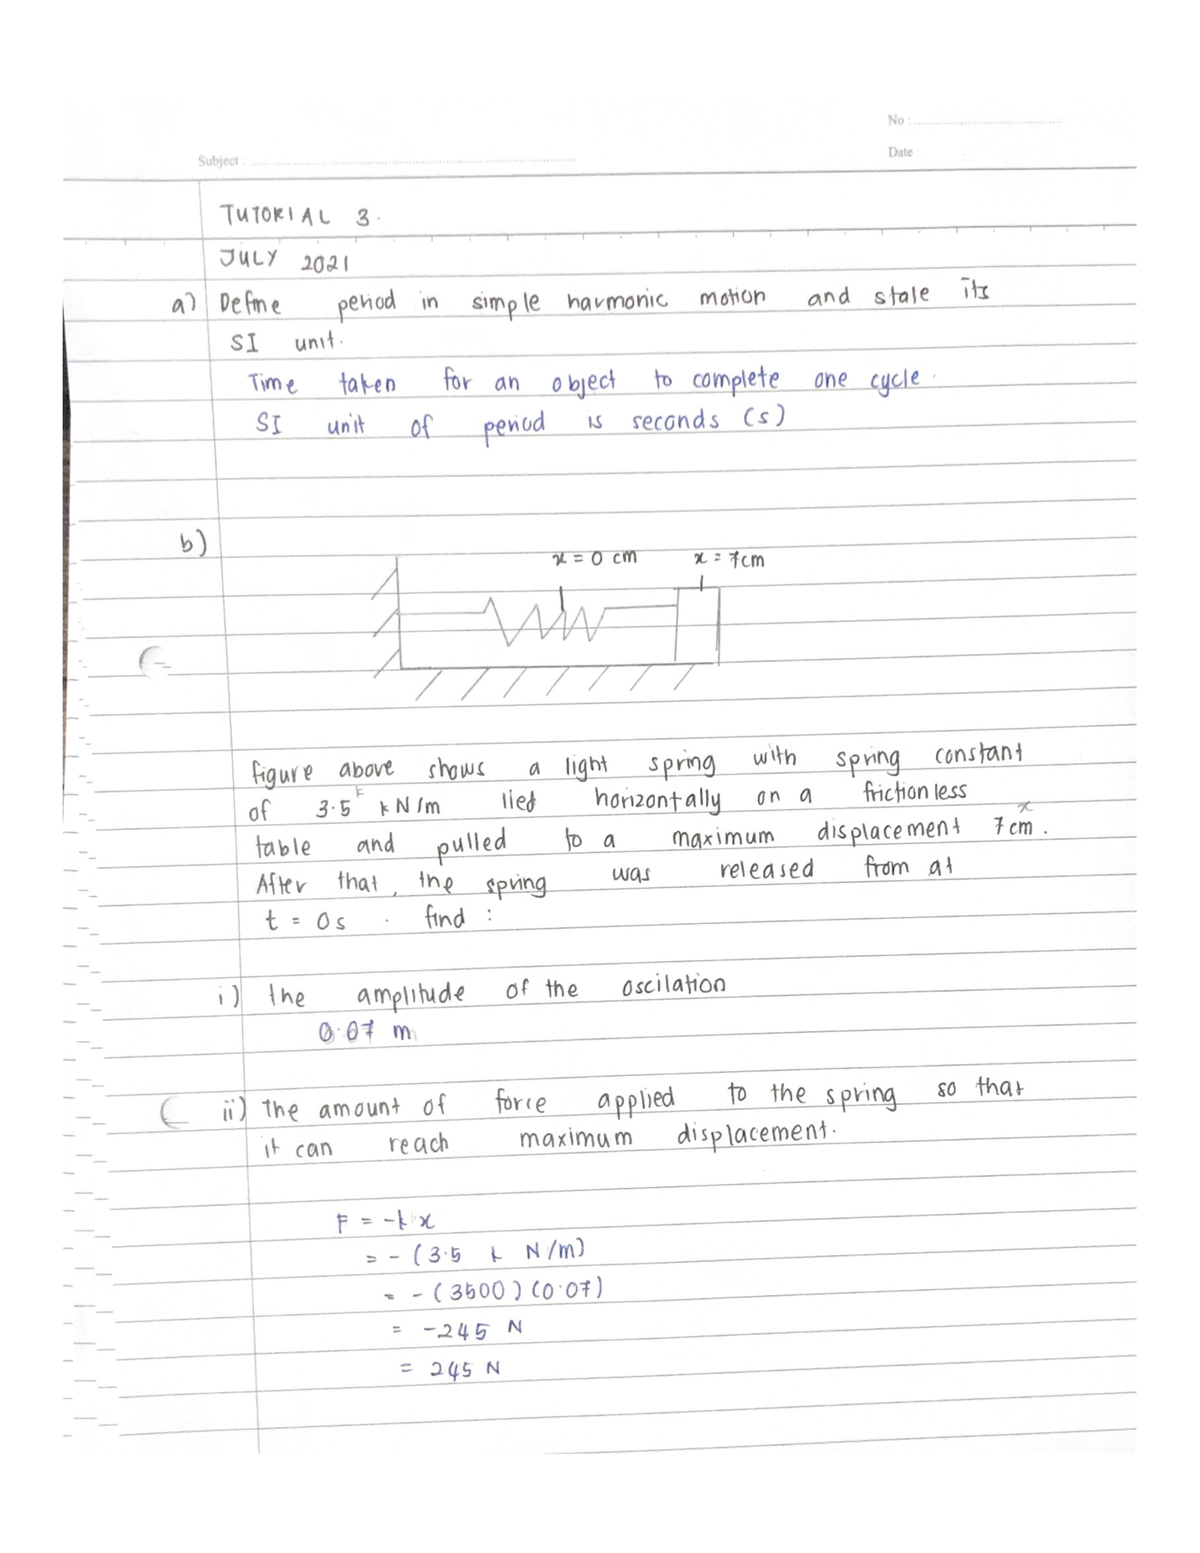 No :
Subject :
Date
TUTORIAL 3.
JULY 2021
a) Define period in simple harmonic motion and state its
SI unit.
Time taken for an object to complete one cycle.
SI unit of period is seconds (s)
b)
x = 0 cm x = 7cm
figure above shows a light spring with spring constant
of 3.5 kN/m lied horizontally on a frictionless
table and pulled to a maximum displacement 7 cm.
x
After that, the spring was released from at
t = 0s . find :
i) the amplitude of the oscilation
0.07 m
ii) The amount of force applied to the spring so that
it can reach maximum displacement.
F = -kx
= - (3.5 k N/m)
= - (3500) (0.07)
= -245 N
= 245 N